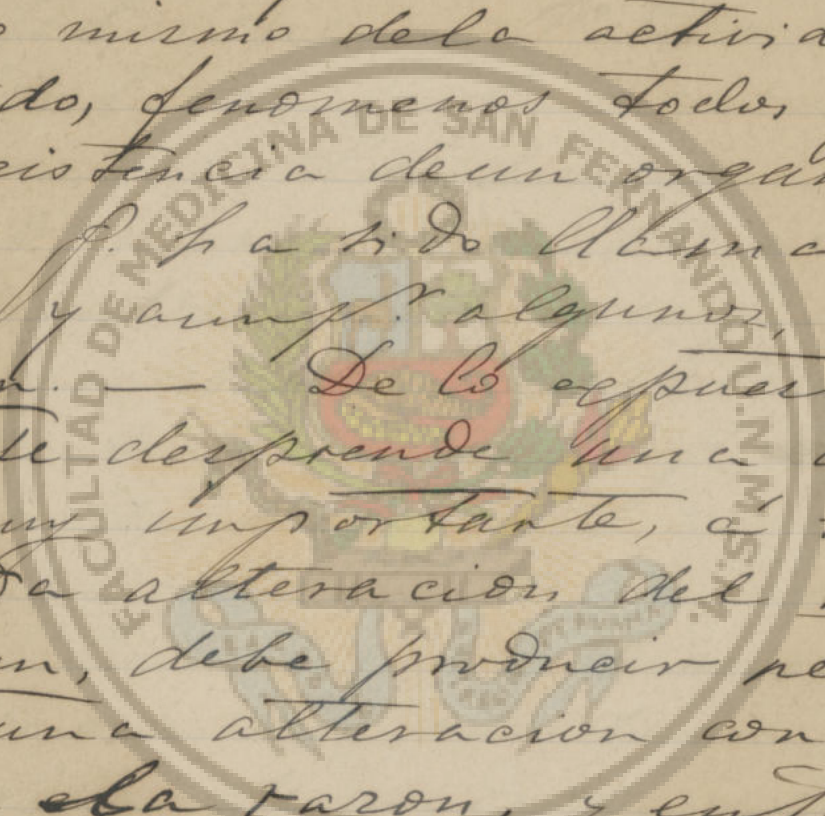 mismo dela activid
do, fenomenos todos
istencia deun orga
ha sido llama
y aun algunos,
n. — De lo espues
te desprende una
uy importante, á
alteracion del
n, debe producir ne
una alteracion con
la razon, y
FACULTAD DE MEDICINA DE SAN FERNANDO U.N.M.S.M.